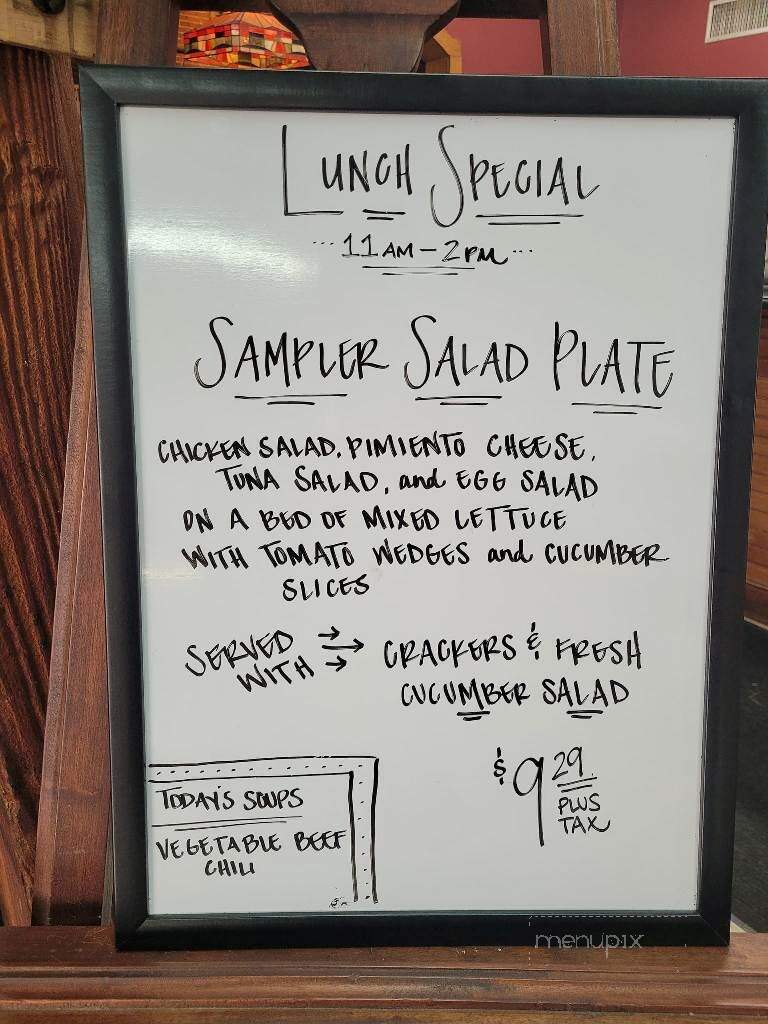 LUNCH SPECIAL
... 11 AM - 2 PM ...
SAMPLER SALAD PLATE
CHICKEN SALAD, PIMIENTO CHEESE,
TUNA SALAD, and EGG SALAD
ON A BED OF MIXED LETTUCE
WITH TOMATO WEDGES and CUCUMBER
SLICES
SERVED WITH →→→ CRACKERS & FRESH
CUCUMBER SALAD
TODAY'S SOUPS
VEGETABLE BEEF
CHILI
$9.29
PLUS
TAX
menupix